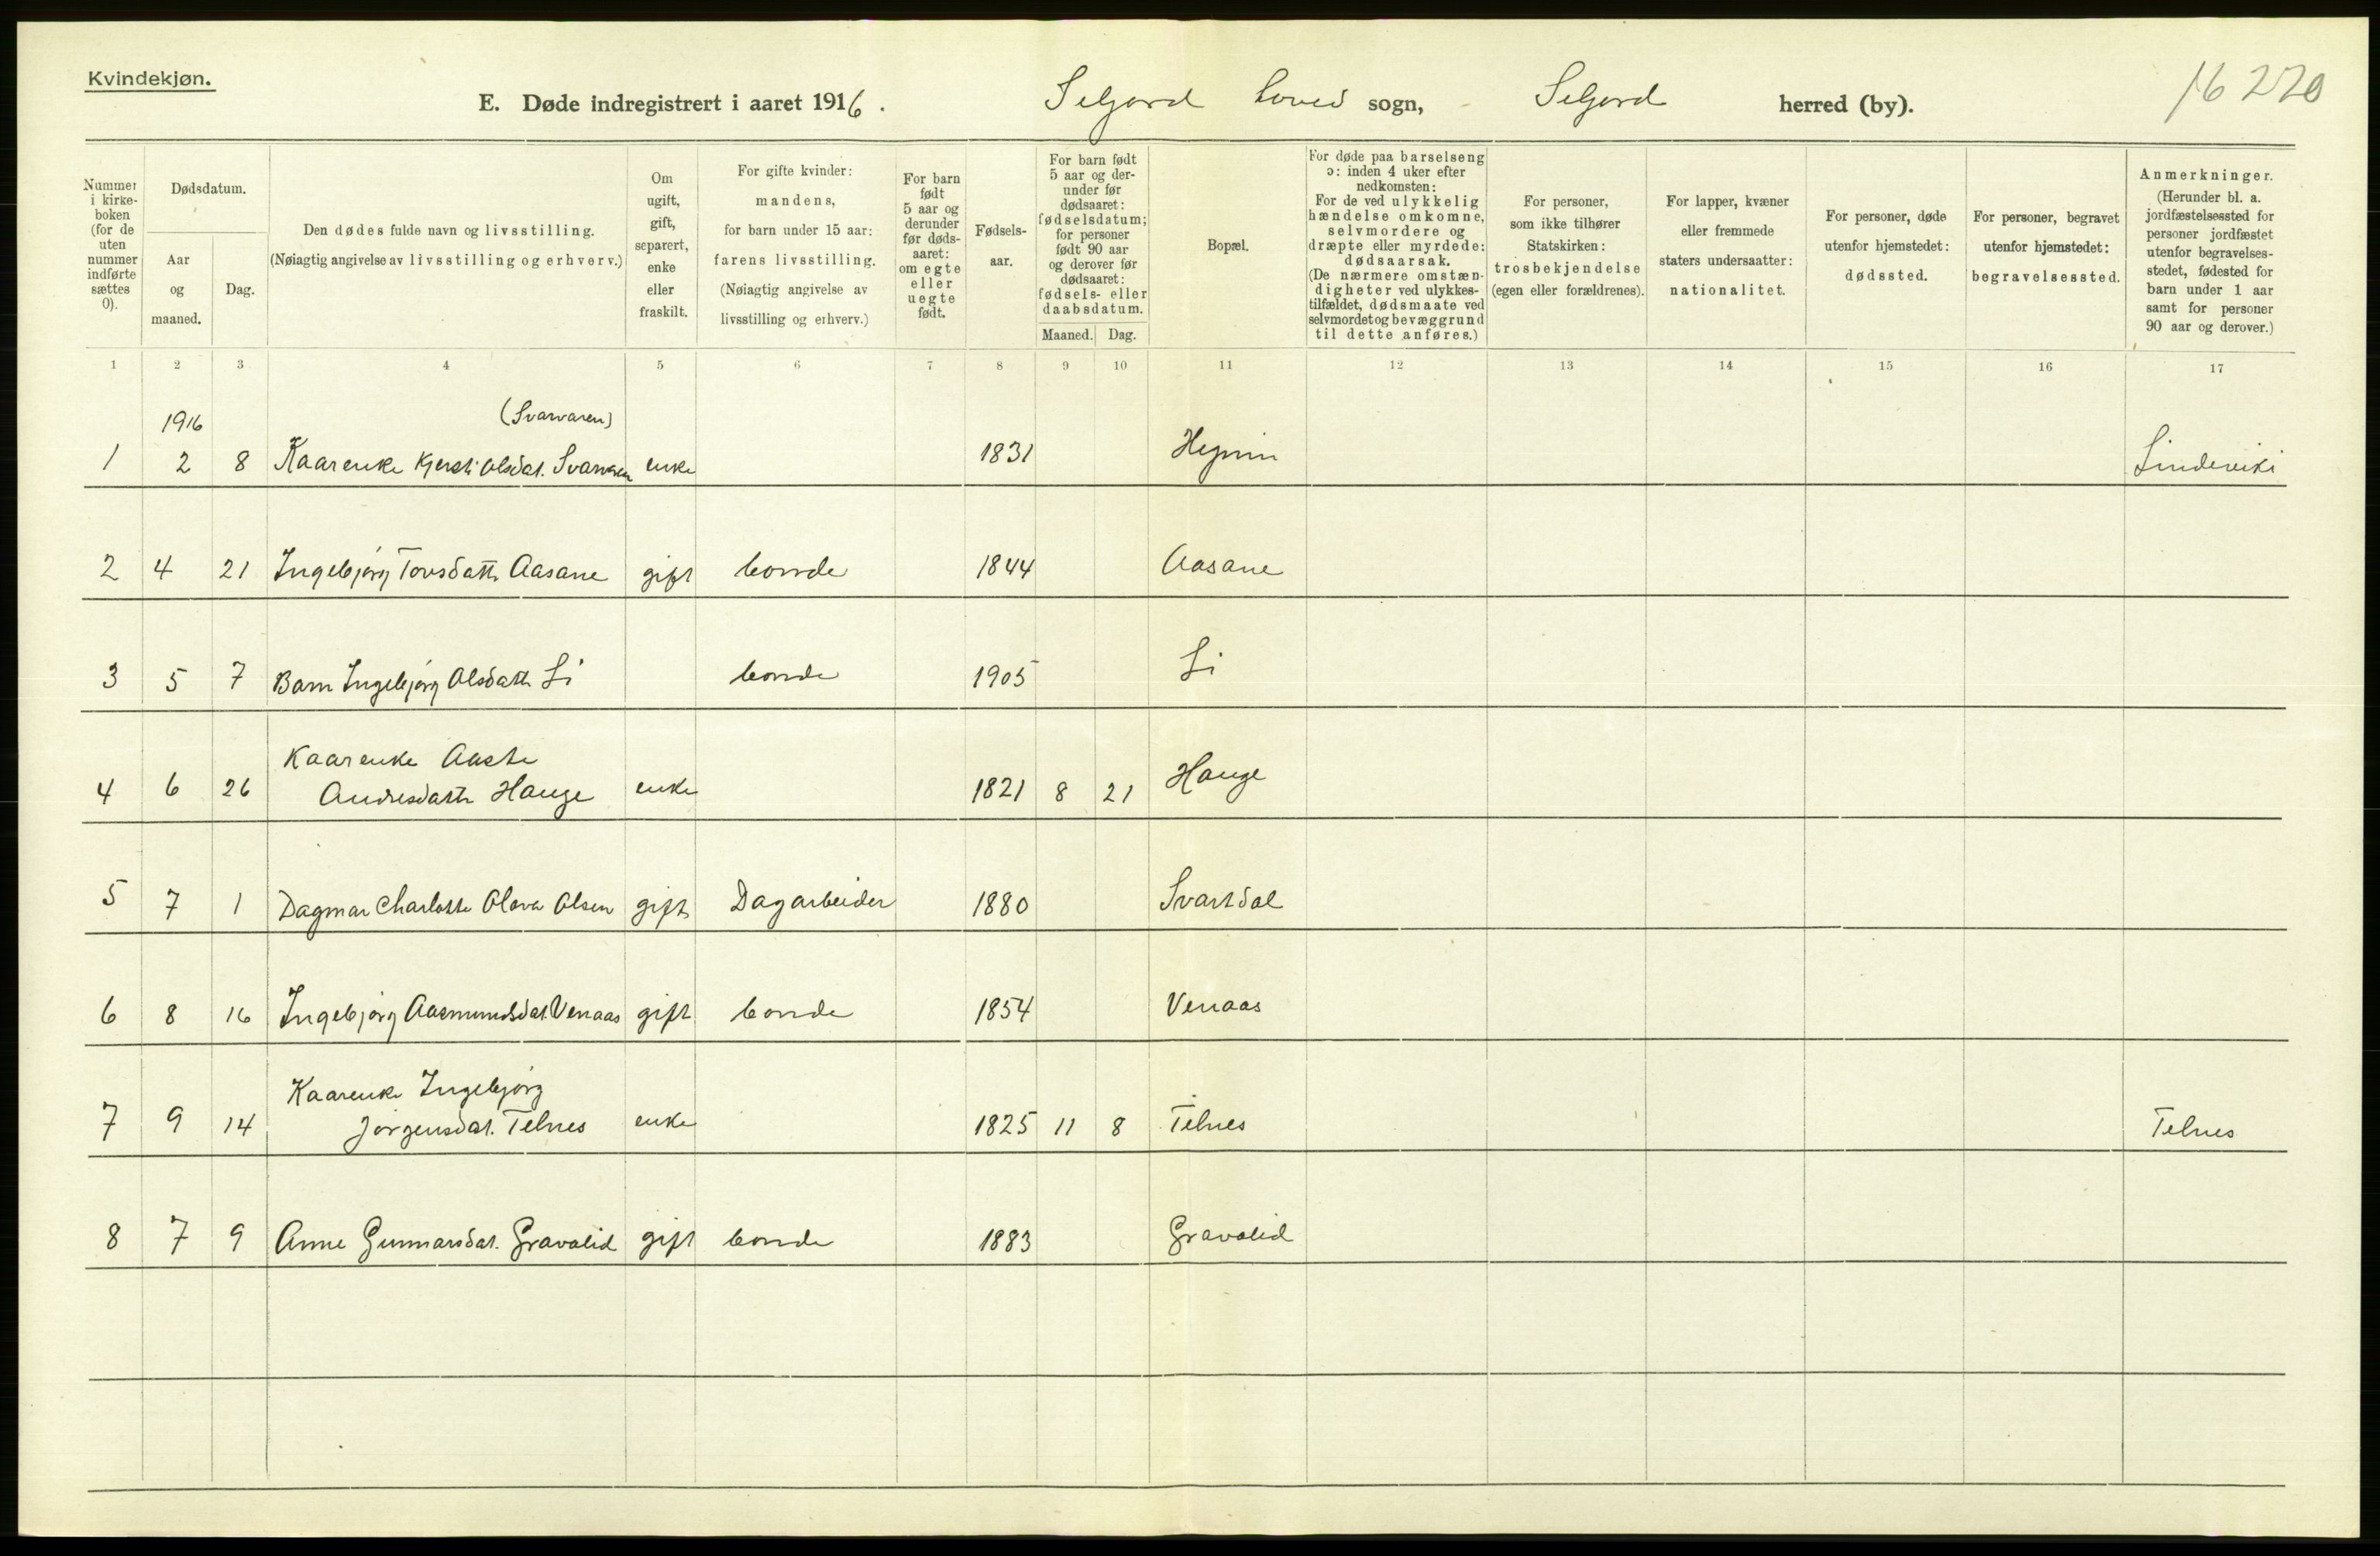 Kvindekjøn.
E. Døde indregistrert i aaret 1916. Seljord hoved sogn, Seljord herred (by). 16 220
Nummer i kirkeboken (for de uten nummer indførte sættes 0).
Dødsdatum.
Aar og maaned.
Dag.
Den dødes fulde navn og livsstilling.
(Nøiagtig angivelse av livsstilling og erhverv.)
Om ugift, gift, separert, enke eller fraskilt.
For gifte kvinder: mandens, for barn under 15 aar: farens livsstilling. (Nøiagtig angivelse av livsstilling og erhverv.)
For barn født 5 aar og derunder før dødsaaret: om egte eller uegte født.
Fødselsaar.
For barn født 5 aar og derunder før dødsaaret: fødselsdatum; for personer født 90 aar og derover før dødsaaret: fødsels- eller daabsdatum.
Maaned. Dag.
Bopæl.
For døde paa barselseng ɔ: inden 4 uker efter nedkomsten: For de ved ulykkelig hændelse omkomne, selvmordere og dræpte eller myrdede: dødsaarsak. (De nærmere omstændigheter ved ulykkestilfældet, dødsmaate ved selvmordet og bevæggrund til dette anføres.)
For personer, som ikke tilhører Statskirken: trosbekjendelse (egen eller forældrenes).
For lapper, kvæner eller fremmede staters undersaatter: nationalitet.
For personer, døde utenfor hjemstedet: dødssted.
For personer, begravet utenfor hjemstedet: begravelsessted.
Anmerkninger. (Herunder bl. a. jordfæstelsessted for personer jordfæstet utenfor begravelsesstedet, fødested for barn under 1 aar samt for personer 90 aar og derover.)
1 2 3 4 5 6 7 8 9 10 11 12 13 14 15 16 17
1916 (Svarvaren)
1 2 8 Kaarenke Kjersti Olsdat. Svarvaren enke 1831 Hegnin Lindeviki
2 4 21 Ingebjørg Tovsdatt Aasane gift bonde 1844 Aasane
3 5 7 Barn Ingebjørg Olsdatt Li bonde 1905 Li
Kaarenke Aaste
4 6 26 Andresdatt Hauge enke 1821 8 21 Hauge
5 7 1 Dagmar Charlotte Olava Olsen gift Dagarbeider 1880 Svartdal
6 8 16 Ingebjørg Aasmundsdat. Venaas gift bonde 1854 Venaas
Kaarenke Ingebjørg
7 9 14 Jørgensdat. Telnes enke 1825 11 8 Telnes Telnes
8 7 9 Anne Gunnarsdat. Gravalid gift bonde 1883 Gravalid